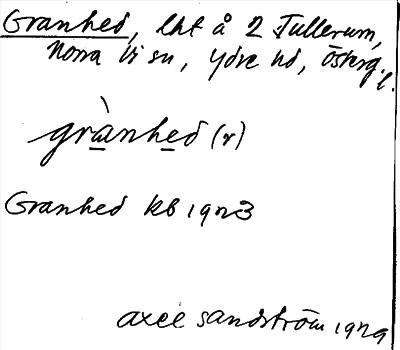 Granhed, lht å 2 Tullerum,
Norra Vi sn, Ydre hd, Österg. l.
grànhed (r)
Granhed kb 1923
Axel Sandström 1929